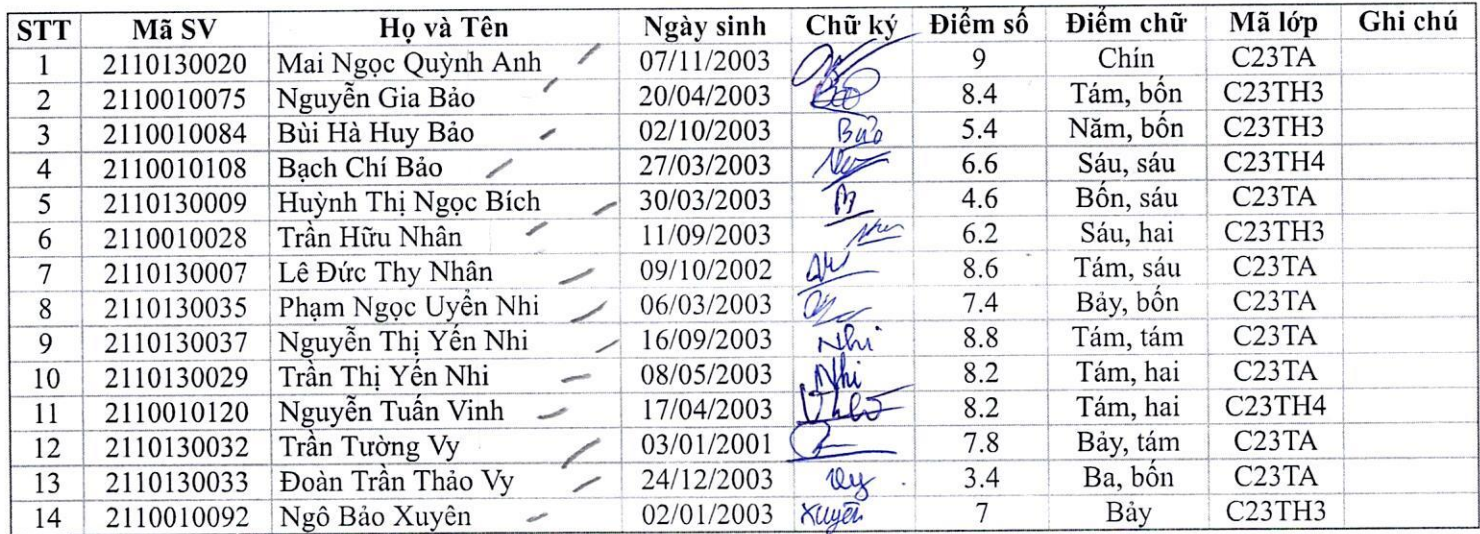 STT Mã SV Họ và Tên Ngày sinh Chữ ký Điểm số Điểm chữ Mã lớp Ghi chú
1 2110130020 Mai Ngọc Quỳnh Anh 07/11/2003 9 Chín C23TA
2 2110010075 Nguyễn Gia Bảo 20/04/2003 8.4 Tám, bốn C23TH3
3 2110010084 Bùi Hà Huy Bảo 02/10/2003 Bảo 5.4 Năm, bốn C23TH3
4 2110010108 Bạch Chí Bảo 27/03/2003 6.6 Sáu, sáu C23TH4
5 2110130009 Huỳnh Thị Ngọc Bích 30/03/2003 4.6 Bốn, sáu C23TA
6 2110010028 Trần Hữu Nhân 11/09/2003 6.2 Sáu, hai C23TH3
7 2110130007 Lê Đức Thy Nhân 09/10/2002 8.6 Tám, sáu C23TA
8 2110130035 Phạm Ngọc Uyển Nhi 06/03/2003 7.4 Bảy, bốn C23TA
9 2110130037 Nguyễn Thị Yến Nhi 16/09/2003 Nhi 8.8 Tám, tám C23TA
10 2110130029 Trần Thị Yến Nhi 08/05/2003 Nhi 8.2 Tám, hai C23TA
11 2110010120 Nguyễn Tuấn Vinh 17/04/2003 8.2 Tám, hai C23TH4
12 2110130032 Trần Tường Vy 03/01/2001 7.8 Bảy, tám C23TA
13 2110130033 Đoàn Trần Thảo Vy 24/12/2003 Vy 3.4 Ba, bốn C23TA
14 2110010092 Ngô Bảo Xuyên 02/01/2003 Xuyên 7 Bảy C23TH3